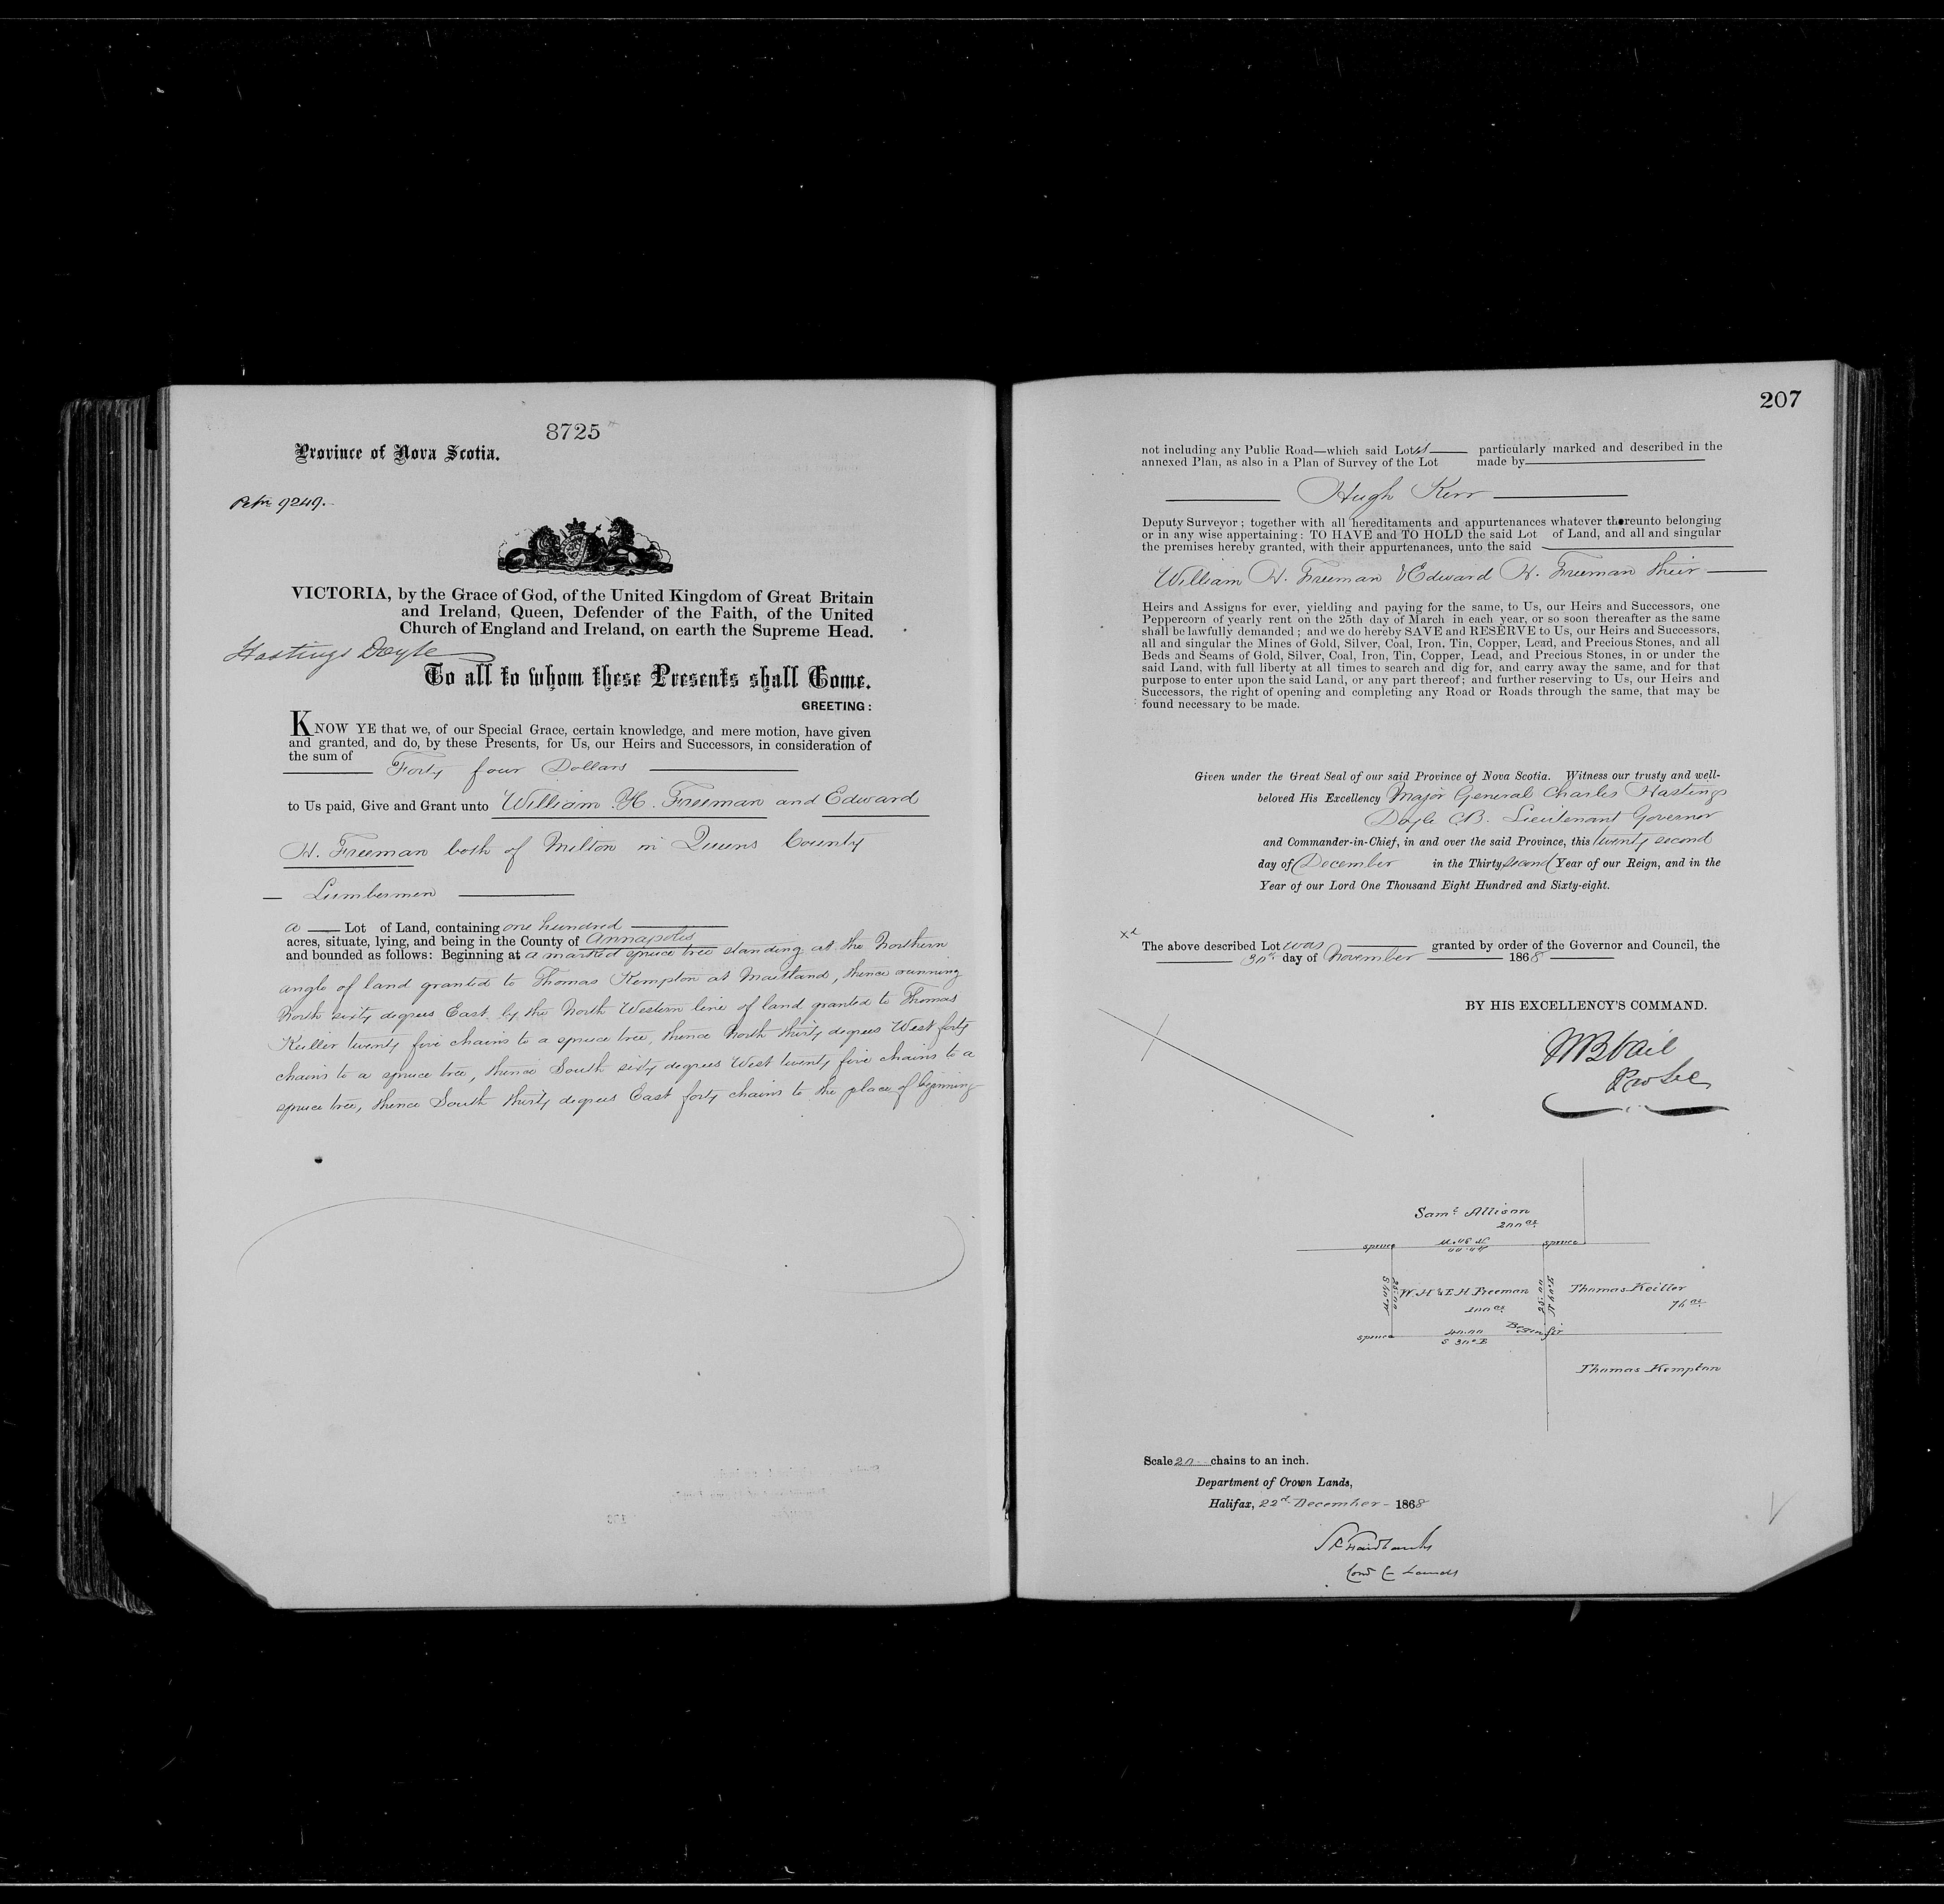 8725
Province of Nova Scotia.
Petn 9249.
VICTORIA, by the Grace of God, of the United Kingdom of Great Britain
and Ireland, Queen, Defender of the Faith, of the United
Church of England and Ireland, on earth the Supreme Head.
Hastings Doyle
To all to whom these Presents shall Come.
GREETING:
KNOW YE that we, of our Special Grace, certain knowledge, and mere motion, have given
and granted, and do, by these Presents, for Us, our Heirs and Successors, in consideration of
the sum of Forty four Dollars
to Us paid, Give and Grant unto William H. Freeman and Edward
H. Freeman both of Milton in Queens County
Lumbermen
a Lot of Land, containing one hundred
acres, situate, lying, and being in the County of Annapolis
and bounded as follows: Beginning at a marked spruce tree standing at the Northern
angle of land granted to Thomas Kempton at Maitland, thence running
North sixty degrees East by the North Western line of land granted to Thomas
Keiller twenty five chains to a spruce tree, thence North thirty degrees West forty
chains to a spruce tree, thence South sixty degrees West twenty five chains to a
spruce tree, thence South thirty degrees East forty chains to the place of beginning
207
not including any Public Road—which said Lot is particularly marked and described in the
annexed Plan, as also in a Plan of Survey of the Lot made by
Hugh Kerr
Deputy Surveyor; together with all hereditaments and appurtenances whatever thereunto belonging
or in any wise appertaining: TO HAVE and TO HOLD the said Lot of Land, and all and singular
the premises hereby granted, with their appurtenances, unto the said
William H. Freeman & Edward H. Freeman their
Heirs and Assigns for ever, yielding and paying for the same, to Us, our Heirs and Successors, one
Peppercorn of yearly rent on the 25th day of March in each year, or so soon thereafter as the same
shall be lawfully demanded; and we do hereby SAVE and RESERVE to Us, our Heirs and Successors,
all and singular the Mines of Gold, Silver, Coal, Iron, Tin, Copper, Lead, and Precious Stones, and all
Beds and Seams of Gold, Silver, Coal, Iron, Tin, Copper, Lead, and Precious Stones, in or under the
said Land, with full liberty at all times to search and dig for, and carry away the same, and for that
purpose to enter upon the said Land, or any part thereof; and further reserving to Us, our Heirs and
Successors, the right of opening and completing any Road or Roads through the same, that may be
found necessary to be made.
Given under the Great Seal of our said Province of Nova Scotia. Witness our trusty and well-
beloved His Excellency Major General Charles Hastings
Doyle C.B. Lieutenant Governor
and Commander-in-Chief, in and over the said Province, this twenty second
day of December in the Thirty second Year of our Reign, and in the
Year of our Lord One Thousand Eight Hundred and Sixty-eight.
xd
The above described Lot was granted by order of the Governor and Council, the
30th day of November 1868
BY HIS EXCELLENCY'S COMMAND.
W B Vail
Pro Sec
Saml Allison
200 as
spruce
spruce
W. H & E H Freeman
100 as
Thomas Keiller
76 as
25.00
25.00
spruce
40.00
S 30° E
Thomas Kempton
Scale 20 chains to an inch.
Department of Crown Lands,
Halifax, 22d December - 1868
S P Fairbanks
Com C Lands